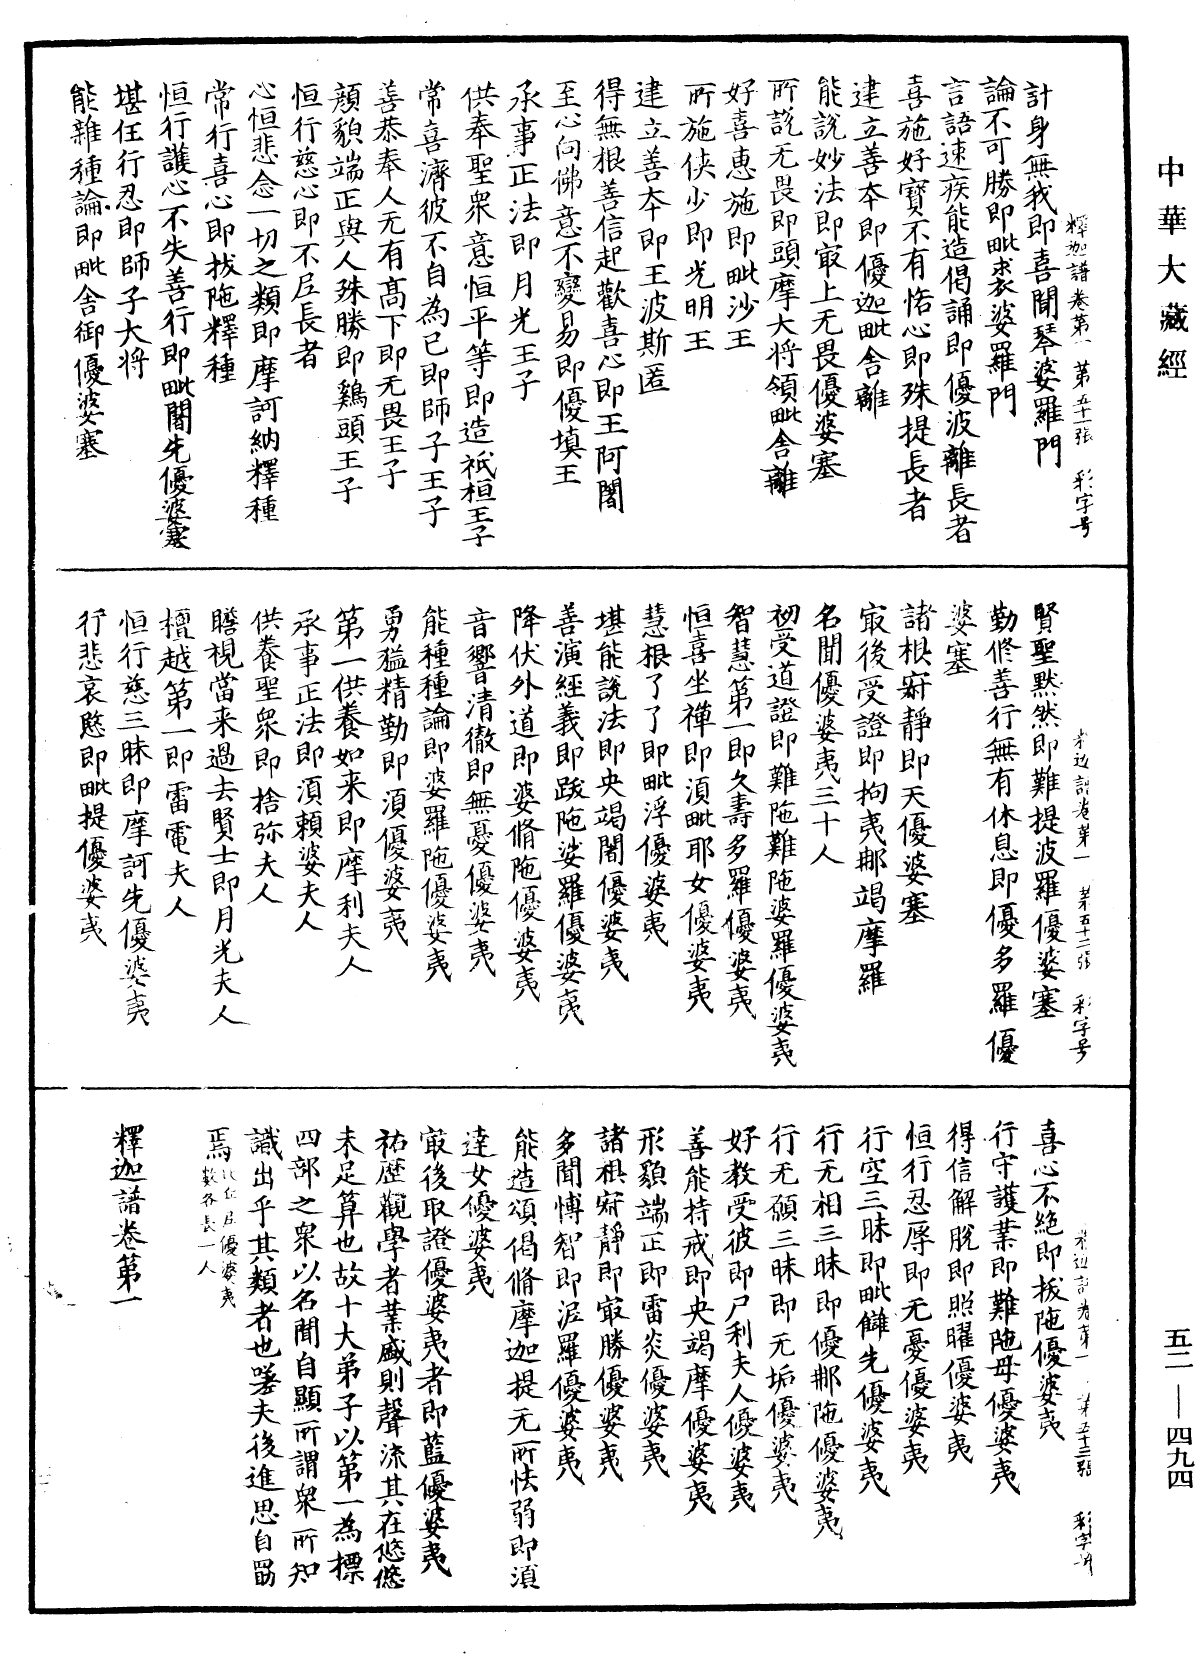 中華大藏經
釋迦譜卷第一 第五十一張 彩字号
計身無我即喜聞琴婆羅門
論不可勝即毗裘婆羅門
言語速疾能造偈誦即優波離長者
喜施好寶不有悋心即殊提長者
建立善夲即優迦毗舎離
能說妙法即㝡上无畏優婆塞
所說无畏即頭摩大将領毗舎離
好喜惠施即毗沙王
所施俠少即光明王
建立善夲即王波斯匿
得無根善信起歡喜心即王阿闍
至心向佛意不變易即優填王
承事正法即月光王子
供奉聖衆意恒平等即造祇桓王子
常喜濟彼不自為己即師子王子
善恭奉人无有髙下即无畏王子
顔貌端正與人殊勝即鷄頭王子
恒行慈心即不𡰱長者
心恒悲念一切之類即摩訶納釋種
常行喜心即拔陁釋種
恒行護心不失善行即毗闍先優婆塞
堪任行忍即師子大将
能雜種論即毗舎御優婆塞
釋迦譜卷第一 第五十二張 彩字号
賢聖黙然即難提波羅優婆塞
勤修善行無有休息即優多羅優
婆塞
諸根㝛靜即天優婆塞
㝡後受證即拘夷那竭摩羅
名聞優婆夷三十人
初受道證即難陁難陁婆羅優婆夷
智慧第一即久壽多羅優婆夷
恒喜坐禪即湏毗耶女優婆夷
慧根了了即毗浮優婆夷
堪能說法即央竭闍優婆夷
善演經義即跋陁娑羅優婆夷
降伏外道即婆脩陁優婆夷
音響清徹即無憂優婆夷
能種種論即婆羅陁優婆夷
勇猛精勤即湏優婆夷
第一供養如来即摩利夫人
承事正法即湏頼婆夫人
供養聖衆即捨弥夫人
瞻視當来過去賢士即月光夫人
檀越第一即雷電夫人
恒行慈三昧即摩訶先優婆夷
行悲哀愍即毗提優婆夷
釋迦譜卷第一 第五十三張 彩字号
喜心不絶即拔陁優婆夷
行守護業即難陁母優婆夷
得信解脫即照曜優婆夷
恒行忍辱即无憂優婆夷
行空三昧即毗讎先優婆夷
行无相三昧即優那陁優婆夷
行无願三昧即无垢優婆夷
好教受彼即尸利夫人優婆夷
善能持戒即央竭摩優婆夷
形貌端正即雷炎優婆夷
諸根㝛靜即㝡勝優婆夷
多聞博智即泥羅優婆夷
能造頌偈脩摩迦提无所怯弱即湏
達女優婆夷
㝡後取證優婆夷者即藍優婆夷
祐歷觀學者業盛則聲流其在悠悠
未足算也故十大弟子以第一為標
四部之衆以名聞自顯所謂衆所知
識出乎其類者也嗟夫後進思自勗
焉
數各長一人
釋迦譜卷第一
五二—四九四